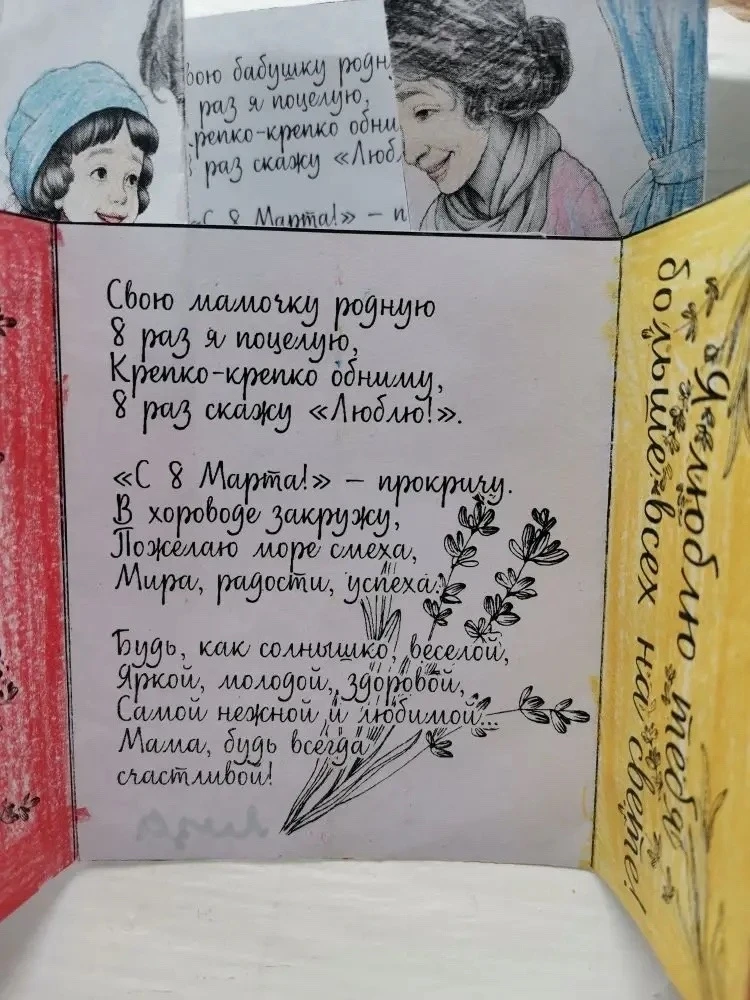 вою бабушку родн
раз я поцелую,
репко-крепко обни
раз скажу «Любл
«С 8 Марта!» – п
Свою мамочку родную
8 раз я поцелую,
Крепко-крепко обниму,
8 раз скажу «Люблю!».
«С 8 Марта!» – прокричу.
В хороводе закружу,
Пожелаю море смеха,
Мира, радости, успеха.
Будь, как солнышко, веселой,
Яркой, молодой, здоровой,
Самой нежной и любимой...
Мама, будь всегда
счастливой!
Я люблю тебя
больше всех на свете!